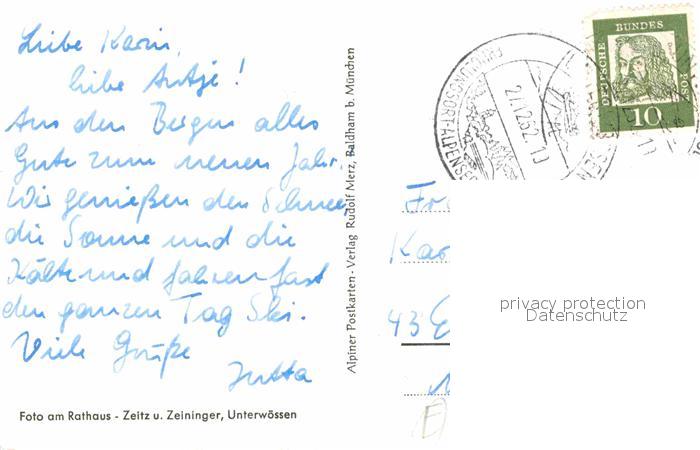 Liebe Karin,
liebe Antje!
Aus den Bergen alles
Gute zum neuen Jahr.
Wir genießen den Schnee
die Sonne und die
Kälte und fahren fast
den ganzen Tag Ski.
Viele Grüße
Jutta
Foto am Rathaus - Zeitz u. Zeininger, Unterwössen
Alpiner Postkarten - Verlag Rudolf Merz, Baldham b. München
DEUTSCHE BUNDESPOST
10
Fr
Kar
43 E
privacy protection
Datenschutz